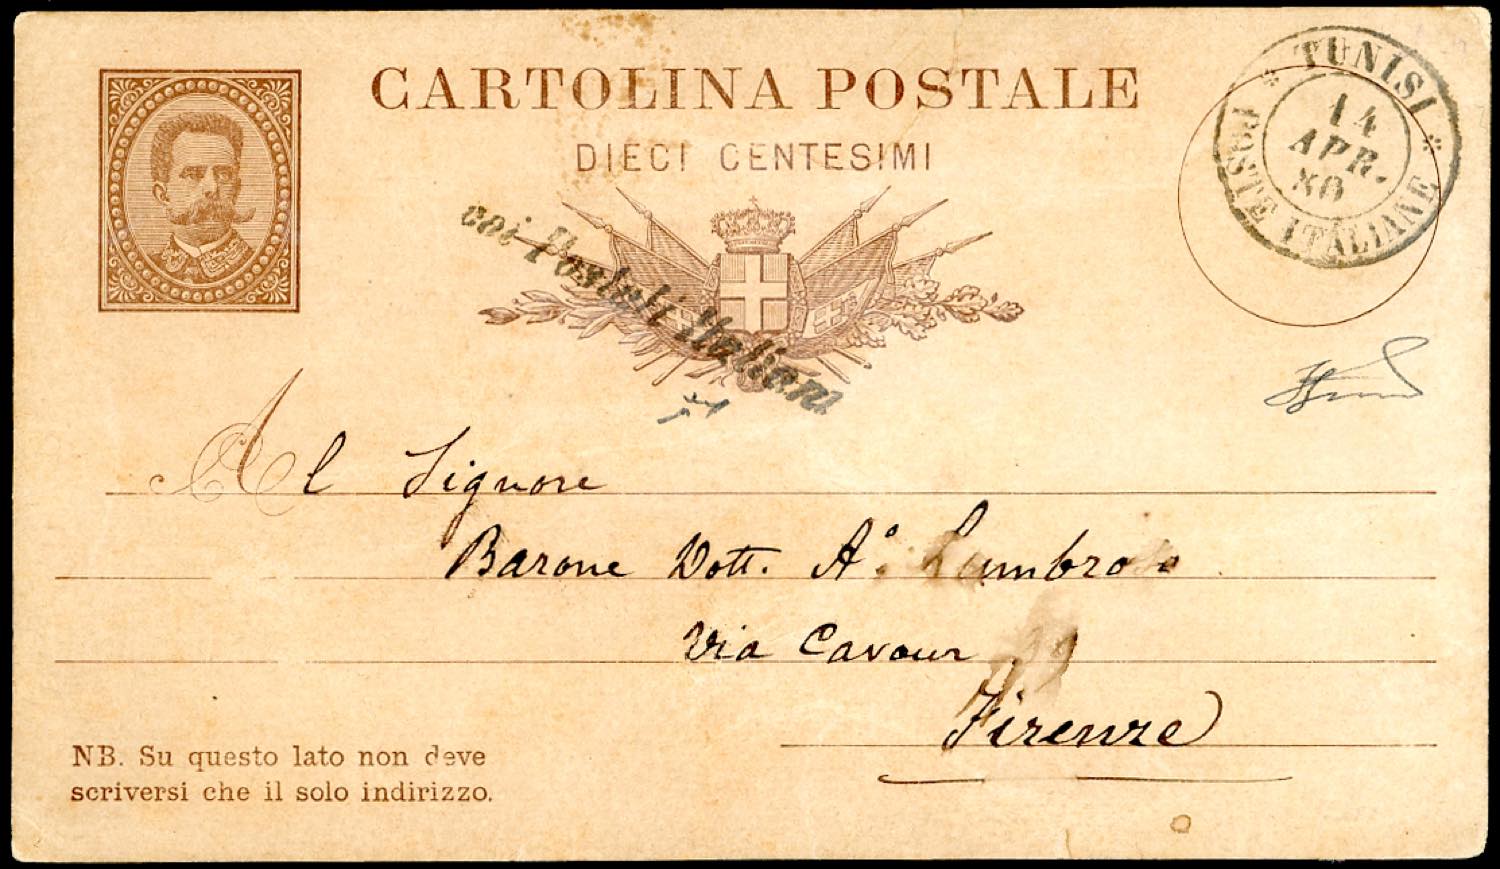 CARTOLINA POSTALE
DIECI CENTESIMI
TUNISI
14
APR.
80
POSTE ITALIANE
coi Postali Italiani
Al Signore
Barone Dott. A°. Lumbroso
Via Cavour
Firenze
NB. Su questo lato non deve
scriversi che il solo indirizzo.